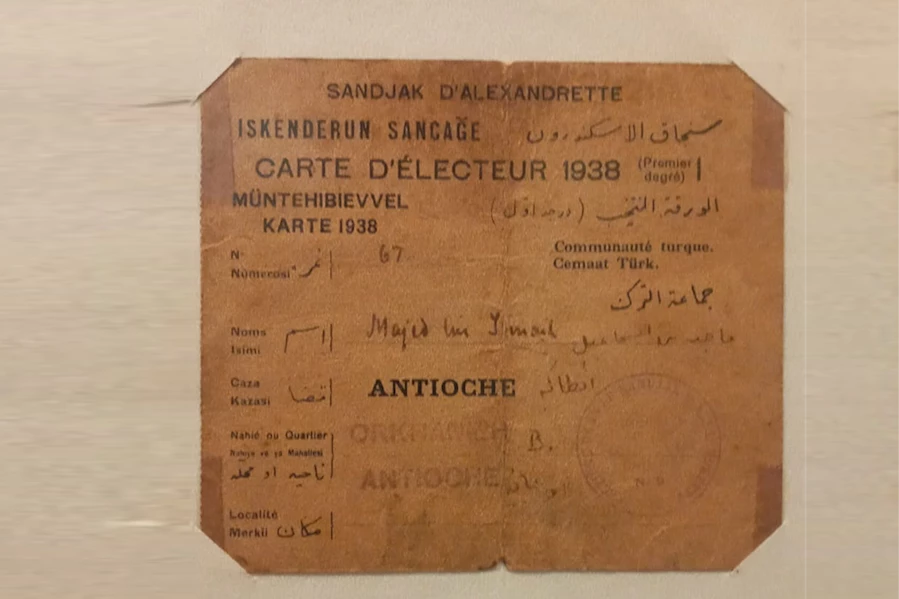 SANDJAK D'ALEXANDRETTE
ISKENDERUN SANCAĞE سنجاق الاسكندرون
CARTE D'ÉLECTEUR 1938 (Premier degré)
MÜNTEHIBIEVVEL الورقة
KARTE 1938
N° 67 Communauté turque.
Nùmerosi Cemaat Türk.
جماعة الترك
Noms اسم Majed bin Ismail
Isimi
Caza قضا ANTIOCHE انطاكيه
Kazasi
Nahié ou Quartier ORKHANIEH B.
Nahiye ve ya Mahallesi
ناحيه او محله ANTIOCHE
Localité
Merkii مكان